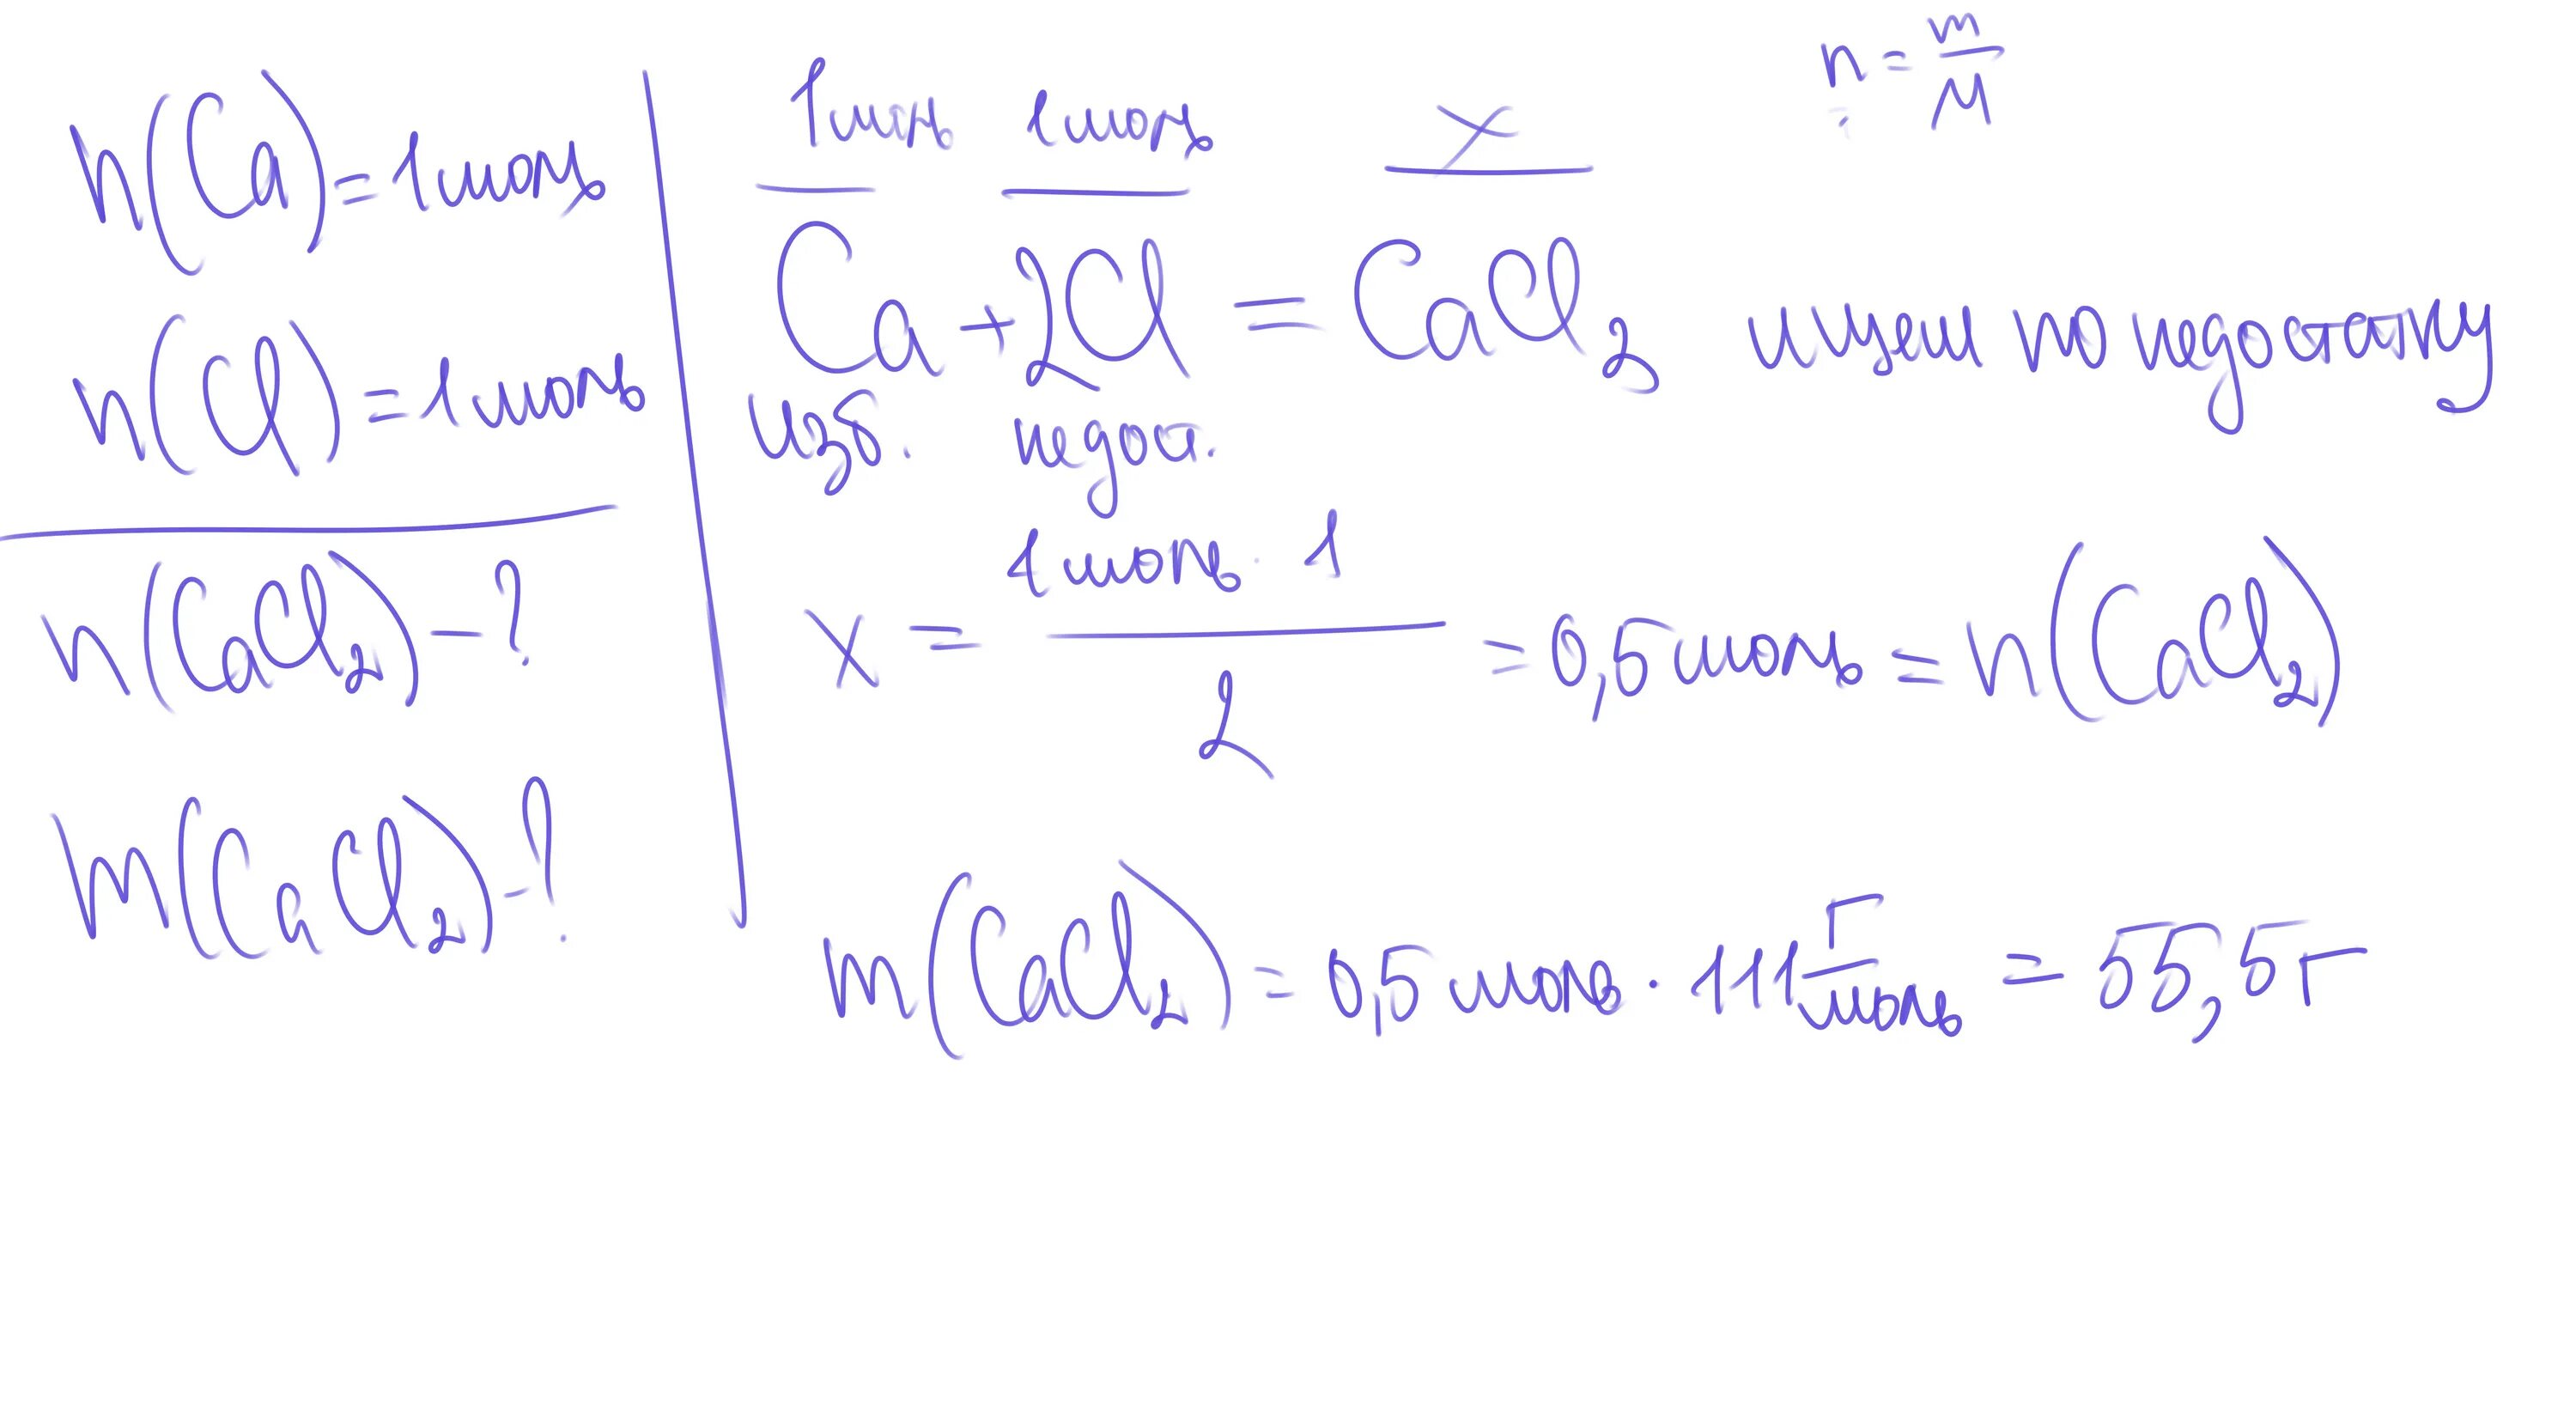 n(Ca) = 1 моль
n(Cl) = 1 моль
n(CaCl₂) - ?
m(CaCl₂) - ?
n = m/M
1 моль 1 моль x
Ca + 2Cl = CaCl₂ ищем по недостатку
изб. недост.
x = (1 моль · 1)/2 = 0,5 моль = n(CaCl₂)
m(CaCl₂) = 0,5 моль · 111 г/моль = 55,5 г